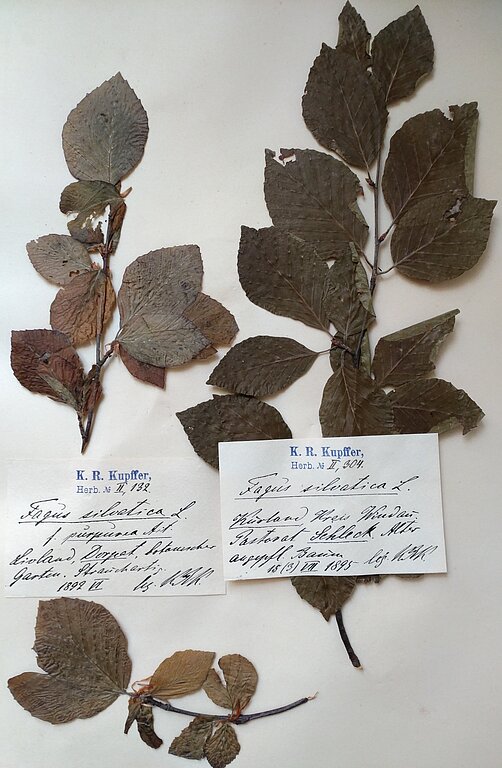 K. R. Kupffer,
Herb. № II, 132
Fagus silvatica L.
f purpurea Ait.
Livland, Dorpat, botanischer
Garten. Strauchartig
1892 VI leg. KRK.
K. R. Kupffer,
Herb. № II, 304.
Fagus silvatica L.
Kurland Kreis Windau.
Pastorat Schleck. Alter
angepfl. Baum
15(3) VII 1895 leg KRK